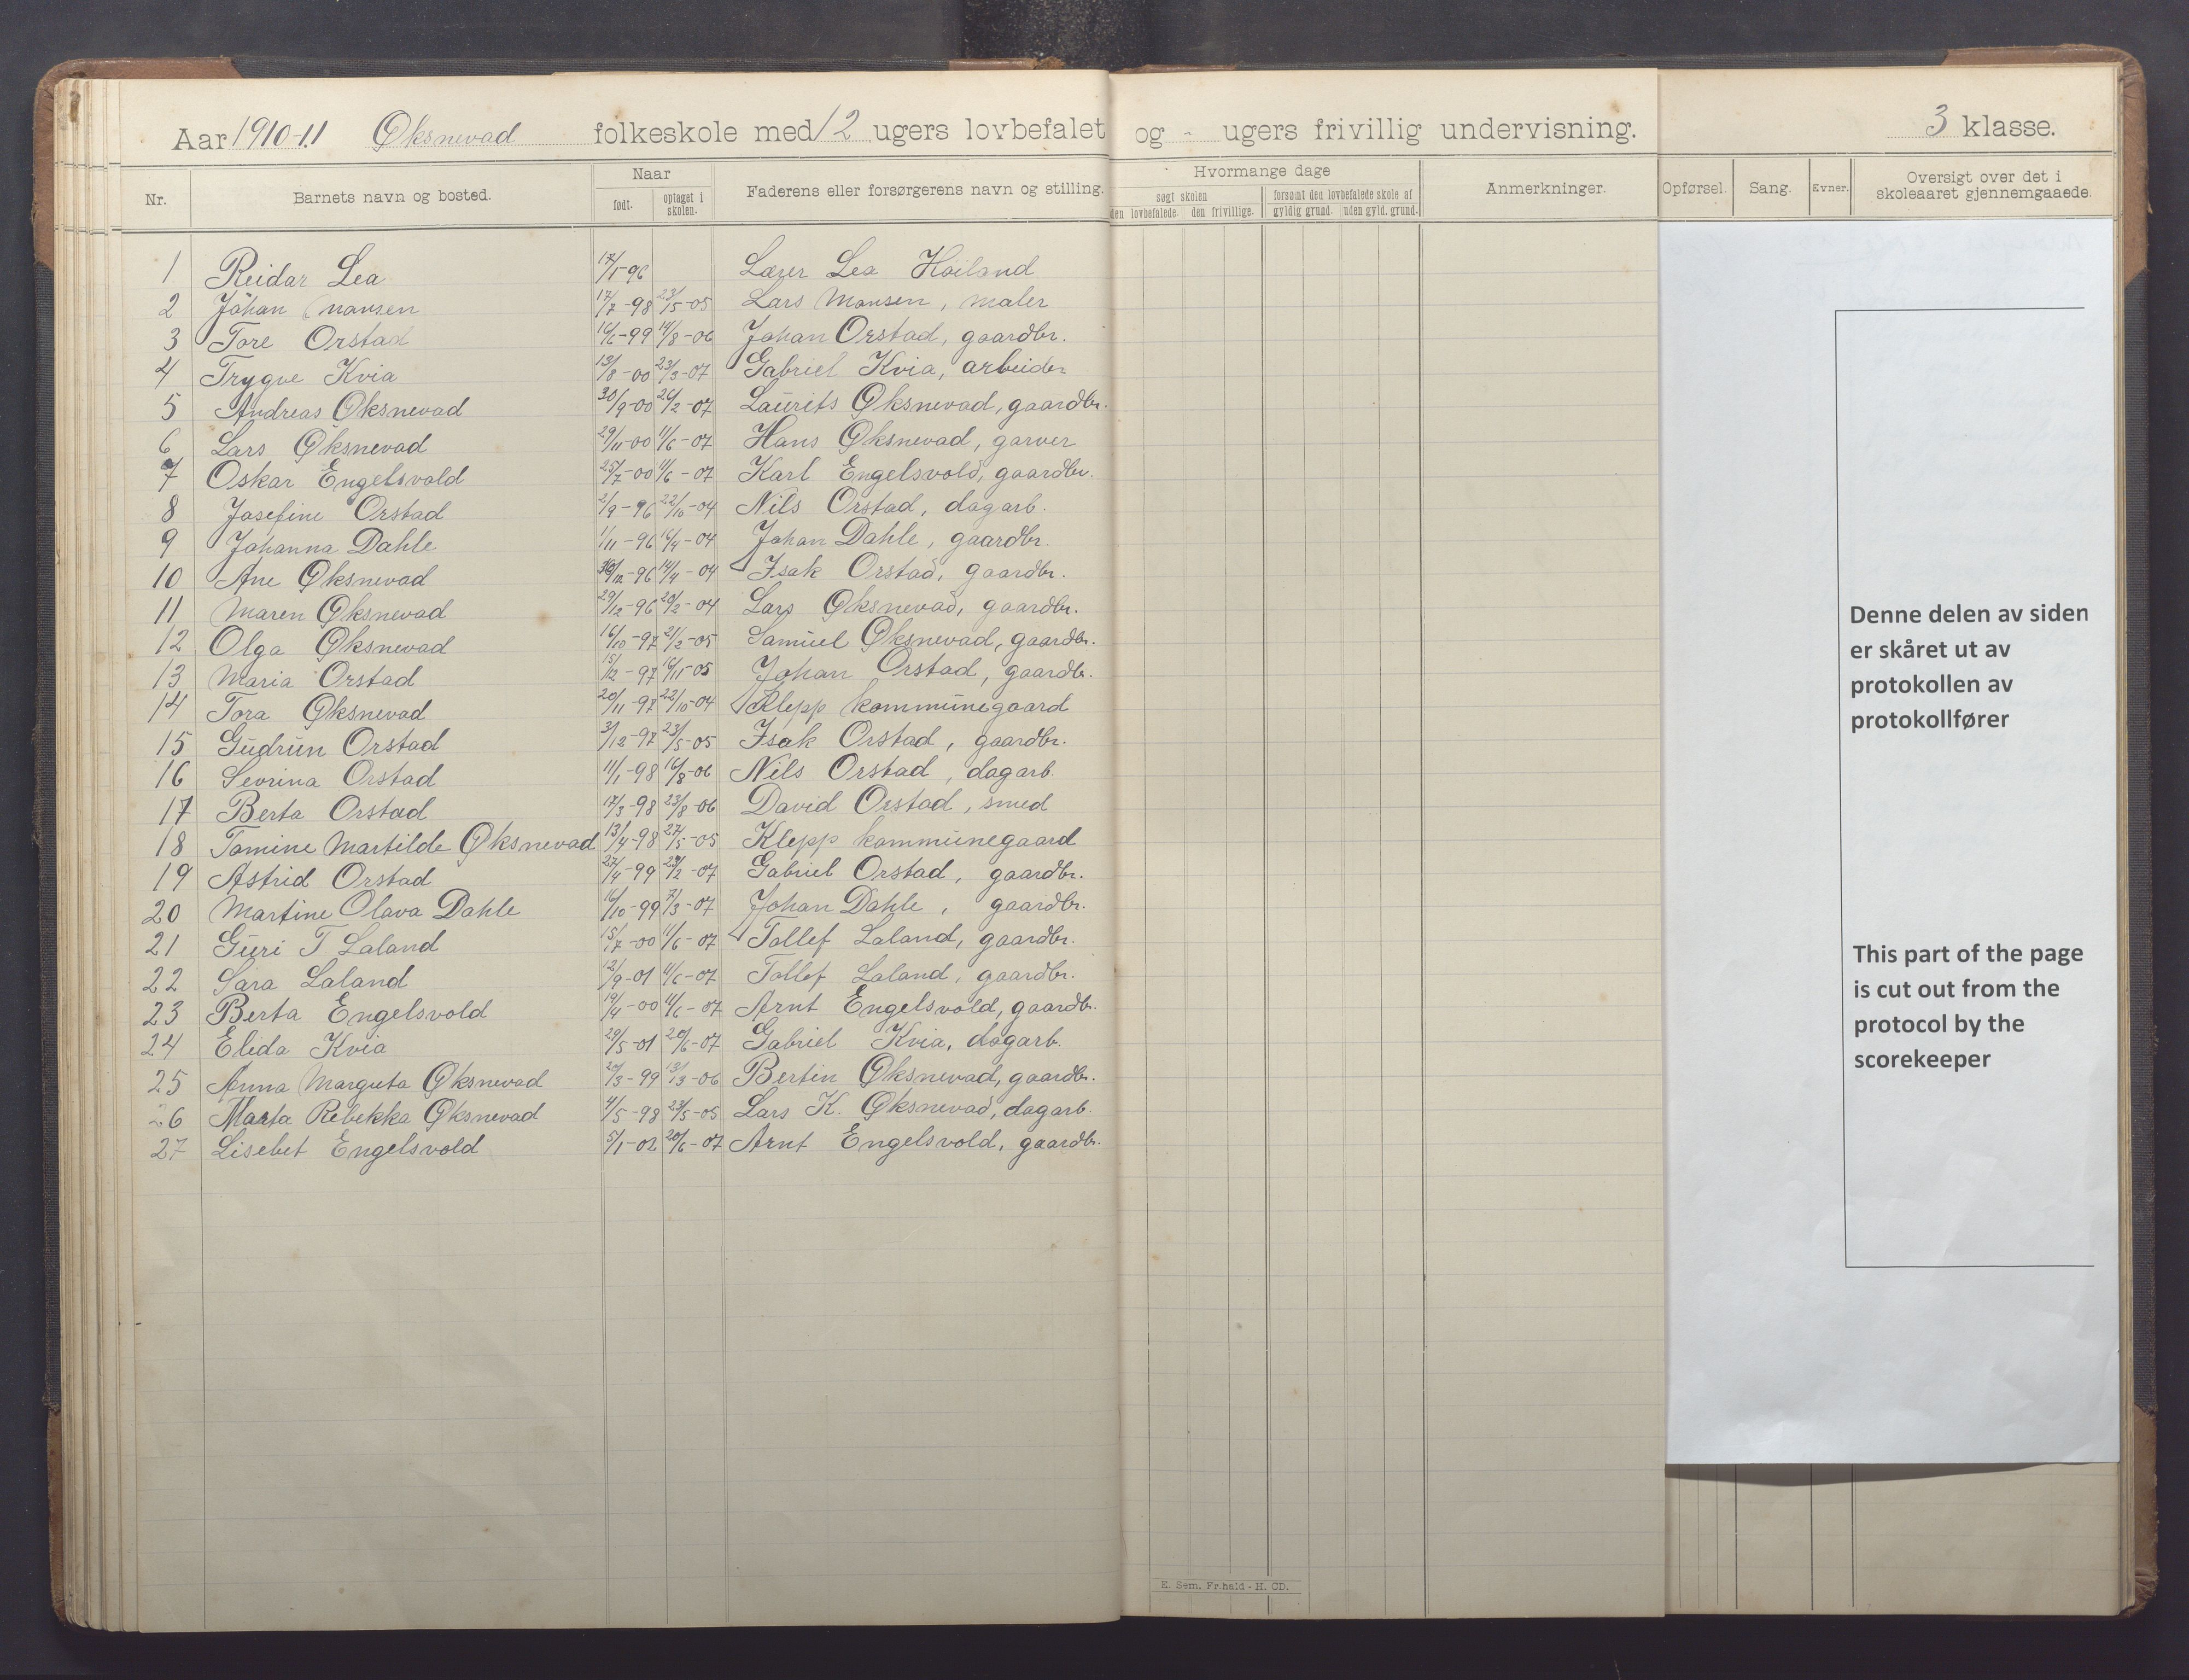 Aar 1910-11 Øksnevad folkeskole med 12 ugers lovbefalet og - ugers frivillig undervisning. 3 klasse.
Nr. Barnets navn og bosted. Naar født. optaget i skolen. Faderens eller forsørgerens navn og stilling. Hvormange dage søgt skolen den lovbefalede. den frivillige. forsømt den lovbefalede skole af gyldig grund. uden gyld. grund. Anmerkninger. Opførsel. Sang. Evner. Oversigt over det i skoleaaret gjennemgaaede.
1 Reidar Lea 17/1-96 Lærer Lea Høiland
2 Johan Mansen 17/7-98 23/5-05 Lars Mansen, maler
3 Tore Orstad 16/6-99 14/8-06 Johan Orstad, gaardbr.
4 Trygve Kvia 13/8-00 23/3-07 Gabriel Kvia, arbeider
5 Andreas Øksnevad 30/9-00 26/2-07 Laurits Øksnevad, gaardbr.
6 Lars Øksnevad 29/11-00 11/6-07 Hans Øksnevad, garver
7 Oskar Engelsvold 25/7-00 11/6-07 Karl Engelsvold, gaardbr.
8 Josefine Orstad 2/9-96 22/10-04 Nils Orstad, dagarb.
9 Johanna Dahle 1/11-96 16/4-04 Johan Dahle, gaardbr.
10 Ane Øksnevad 30/12-96 14/4-04 Isak Orstad, gaardbr.
11 Maren Øksnevad 29/12-96 20/2-04 Lars Øksnevad, gaardbr.
12 Olga Øksnevad 16/10-97 21/2-05 Samuel Øksnevad, gaardbr.
13 Maria Orstad 15/12-97 16/11-05 Johan Orstad, gaardbr.
14 Tora Øksnevad 20/11-97 22/10-04 Klepp kommunegaard
15 Gudrun Orstad 3/12-97 23/5-05 Isak Orstad, gaardbr.
16 Sevrina Orstad 11/1-98 16/8-06 Nils Orstad, dagarb.
17 Berta Orstad 17/3-98 23/8-06 David Orstad, smed
18 Tomine Martilde Øksnevad 13/4-98 27/5-05 Klepp kommunegaard
19 Astrid Orstad 27/4-99 /2-07 Gabriel Orstad, gaardbr.
20 Martine Olava Dahle 16/10-99 7/3-07 Johan Dahle, gaardbr.
21 Guri T Laland 15/7-00 11/6-07 Tollef Laland, gaardbr.
22 Sara Laland 12/9-01 11/6-07 Tollef Laland, gaardbr.
23 Berta Engelsvold 19/4-00 11/6-07 Arnt Engelsvold, gaardbr.
24 Elida Kvia 29/5-01 20/6-07 Gabriel Kvia, dagarb.
25 Anna Margreta Øksnevad 20/3-99 13/3-06 Bertin Øksnevad, gaardbr.
26 Marta Rebekka Øksnevad 4/5-98 23/5-05 Lars K. Øksnevad, dagarb.
27 Lisebet Engelsvold 5/1-02 20/6-07 Arnt Engelsvold, gaardbr.
E. Sem. Fr.hald - H. OD.
Denne delen av siden
er skåret ut av
protokollen av
protokollfører
This part of the page
is cut out from the
protocol by the
scorekeeper